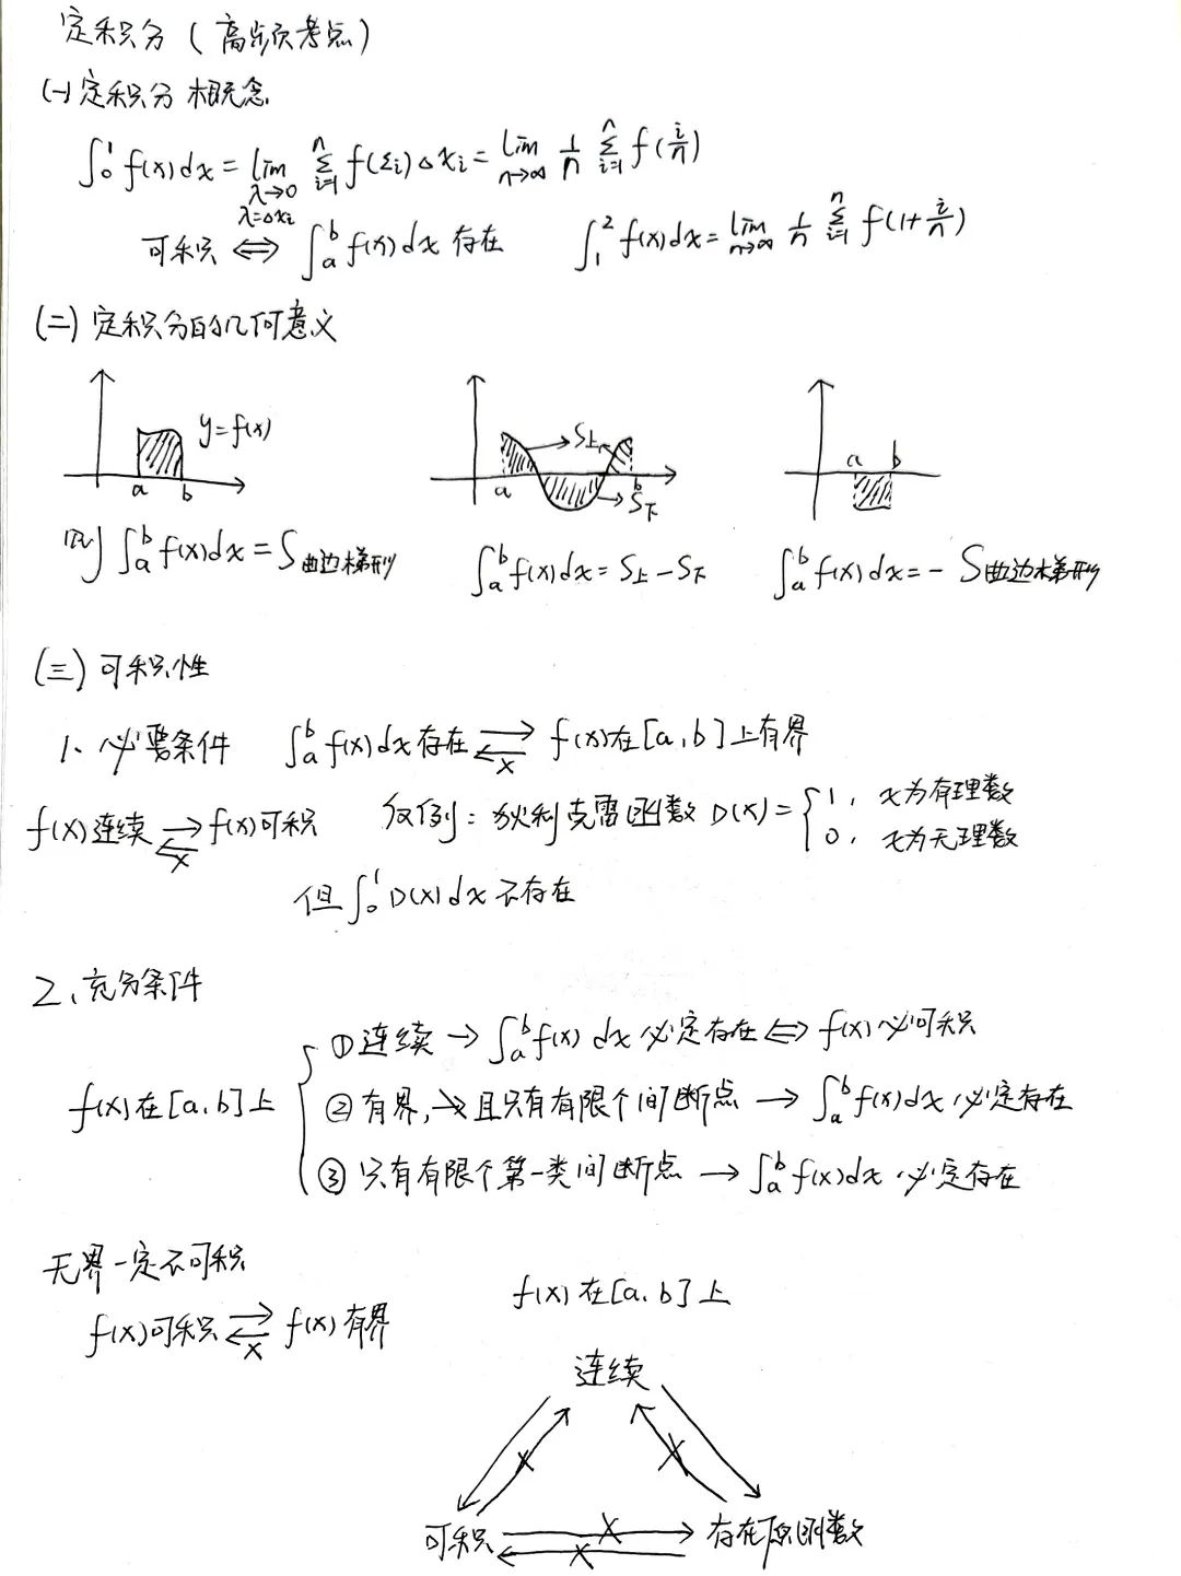 定积分（高频考点）
(一)定积分概念
∫₀¹ f(x)dx = lim_{λ→0, λ=Δxi} Σ_{i=1}^{n} f(ξi)Δxi = lim_{n→∞} 1/n Σ_{i=1}^{n} f(i/n)
可积 ⟺ ∫_a^b f(x)dx 存在 ∫₁² f(x)dx = lim_{n→∞} 1/n Σ_{i=1}^{n} f(1+i/n)
(二) 定积分的几何意义
y=f(x) a b
S上 S下 a b
a b
则 ∫_a^b f(x)dx = S曲边梯形 ∫_a^b f(x)dx = S上 - S下 ∫_a^b f(x)dx = - S曲边梯形
(三) 可积性
1、必要条件 ∫_a^b f(x)dx 存在 ⇄× f(x)在[a,b]上有界
f(x)连续 ⇄× f(x)可积 反例：狄利克雷函数 D(x)= { 1, x为有理数
0, x为无理数
但 ∫₀¹ D(x)dx 不存在
2、充分条件
f(x)在[a,b]上 { ①连续 → ∫_a^b f(x)dx 必定存在 ⟺ f(x)必可积
②有界, 且只有有限个间断点 → ∫_a^b f(x)dx 必定存在
③只有有限个第一类间断点 → ∫_a^b f(x)dx 必定存在
无界一定不可积
f(x)可积 ⇄× f(x)有界
f(x)在[a,b]上
连续
可积 存在原函数